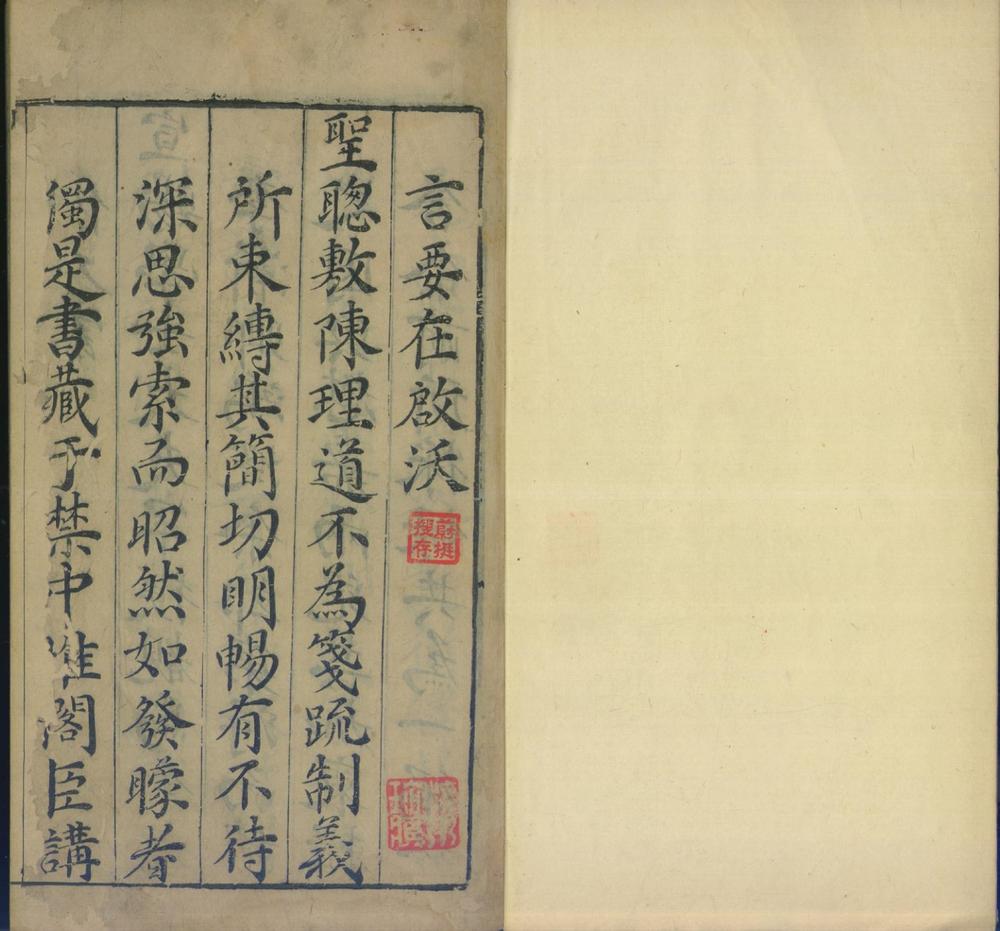 言要在啟沃
聖聰敷陳理道不為箋疏制義
所束縛其簡切明暢有不待
深思強索而昭然如發矇者
獨是書藏于禁中唯閣臣講
蔚挺
搜存